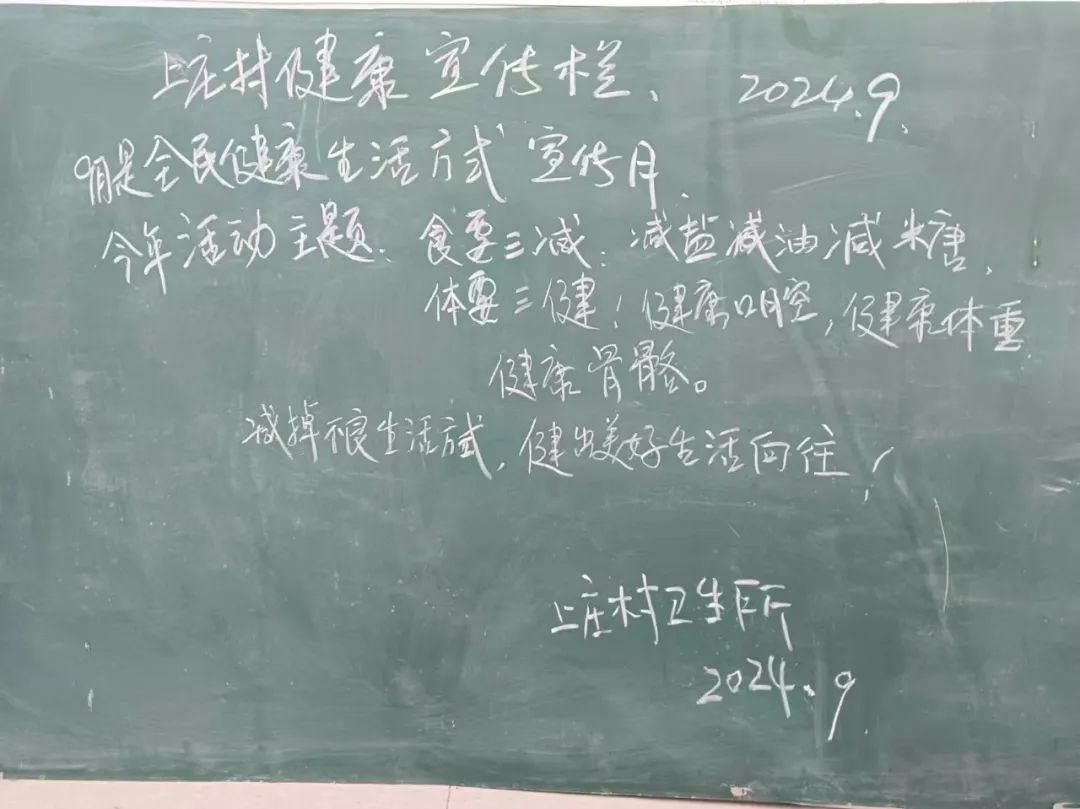 上庄村健康宣传栏、 2024.9.
9月是全民健康生活方式宣传月.
今年活动主题: 食要三减: 减盐减油减糖.
体要三健! 健康口腔, 健康体重
健康骨骼。
减掉不良生活方式, 健出美好生活向往!
上庄村卫生所
2024、9